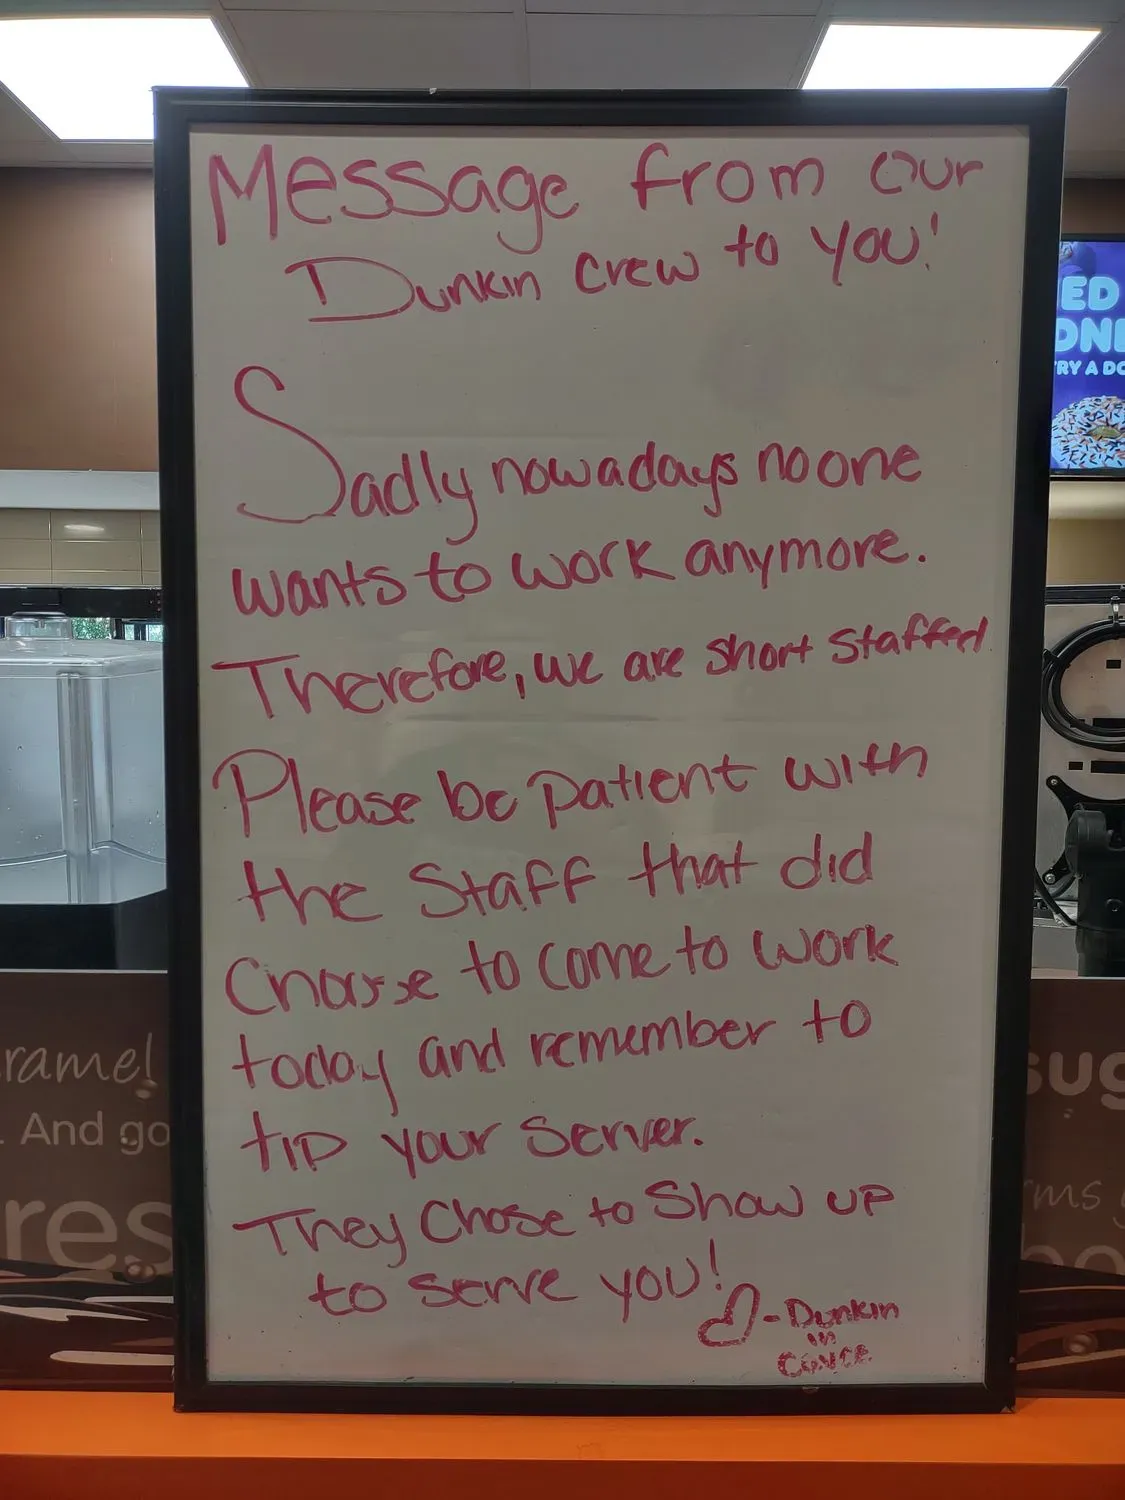 Message from our
Dunkin crew to you!
Sadly nowadays no one
wants to work anymore.
Therefore, we are short staffed
Please be patient with
the staff that did
choose to come to work
today and remember to
tip your server.
They chose to show up
to serve you!
- Dunkin
in
ED
ONE
TRY A DO
ramel
. And go
res
sug
rms